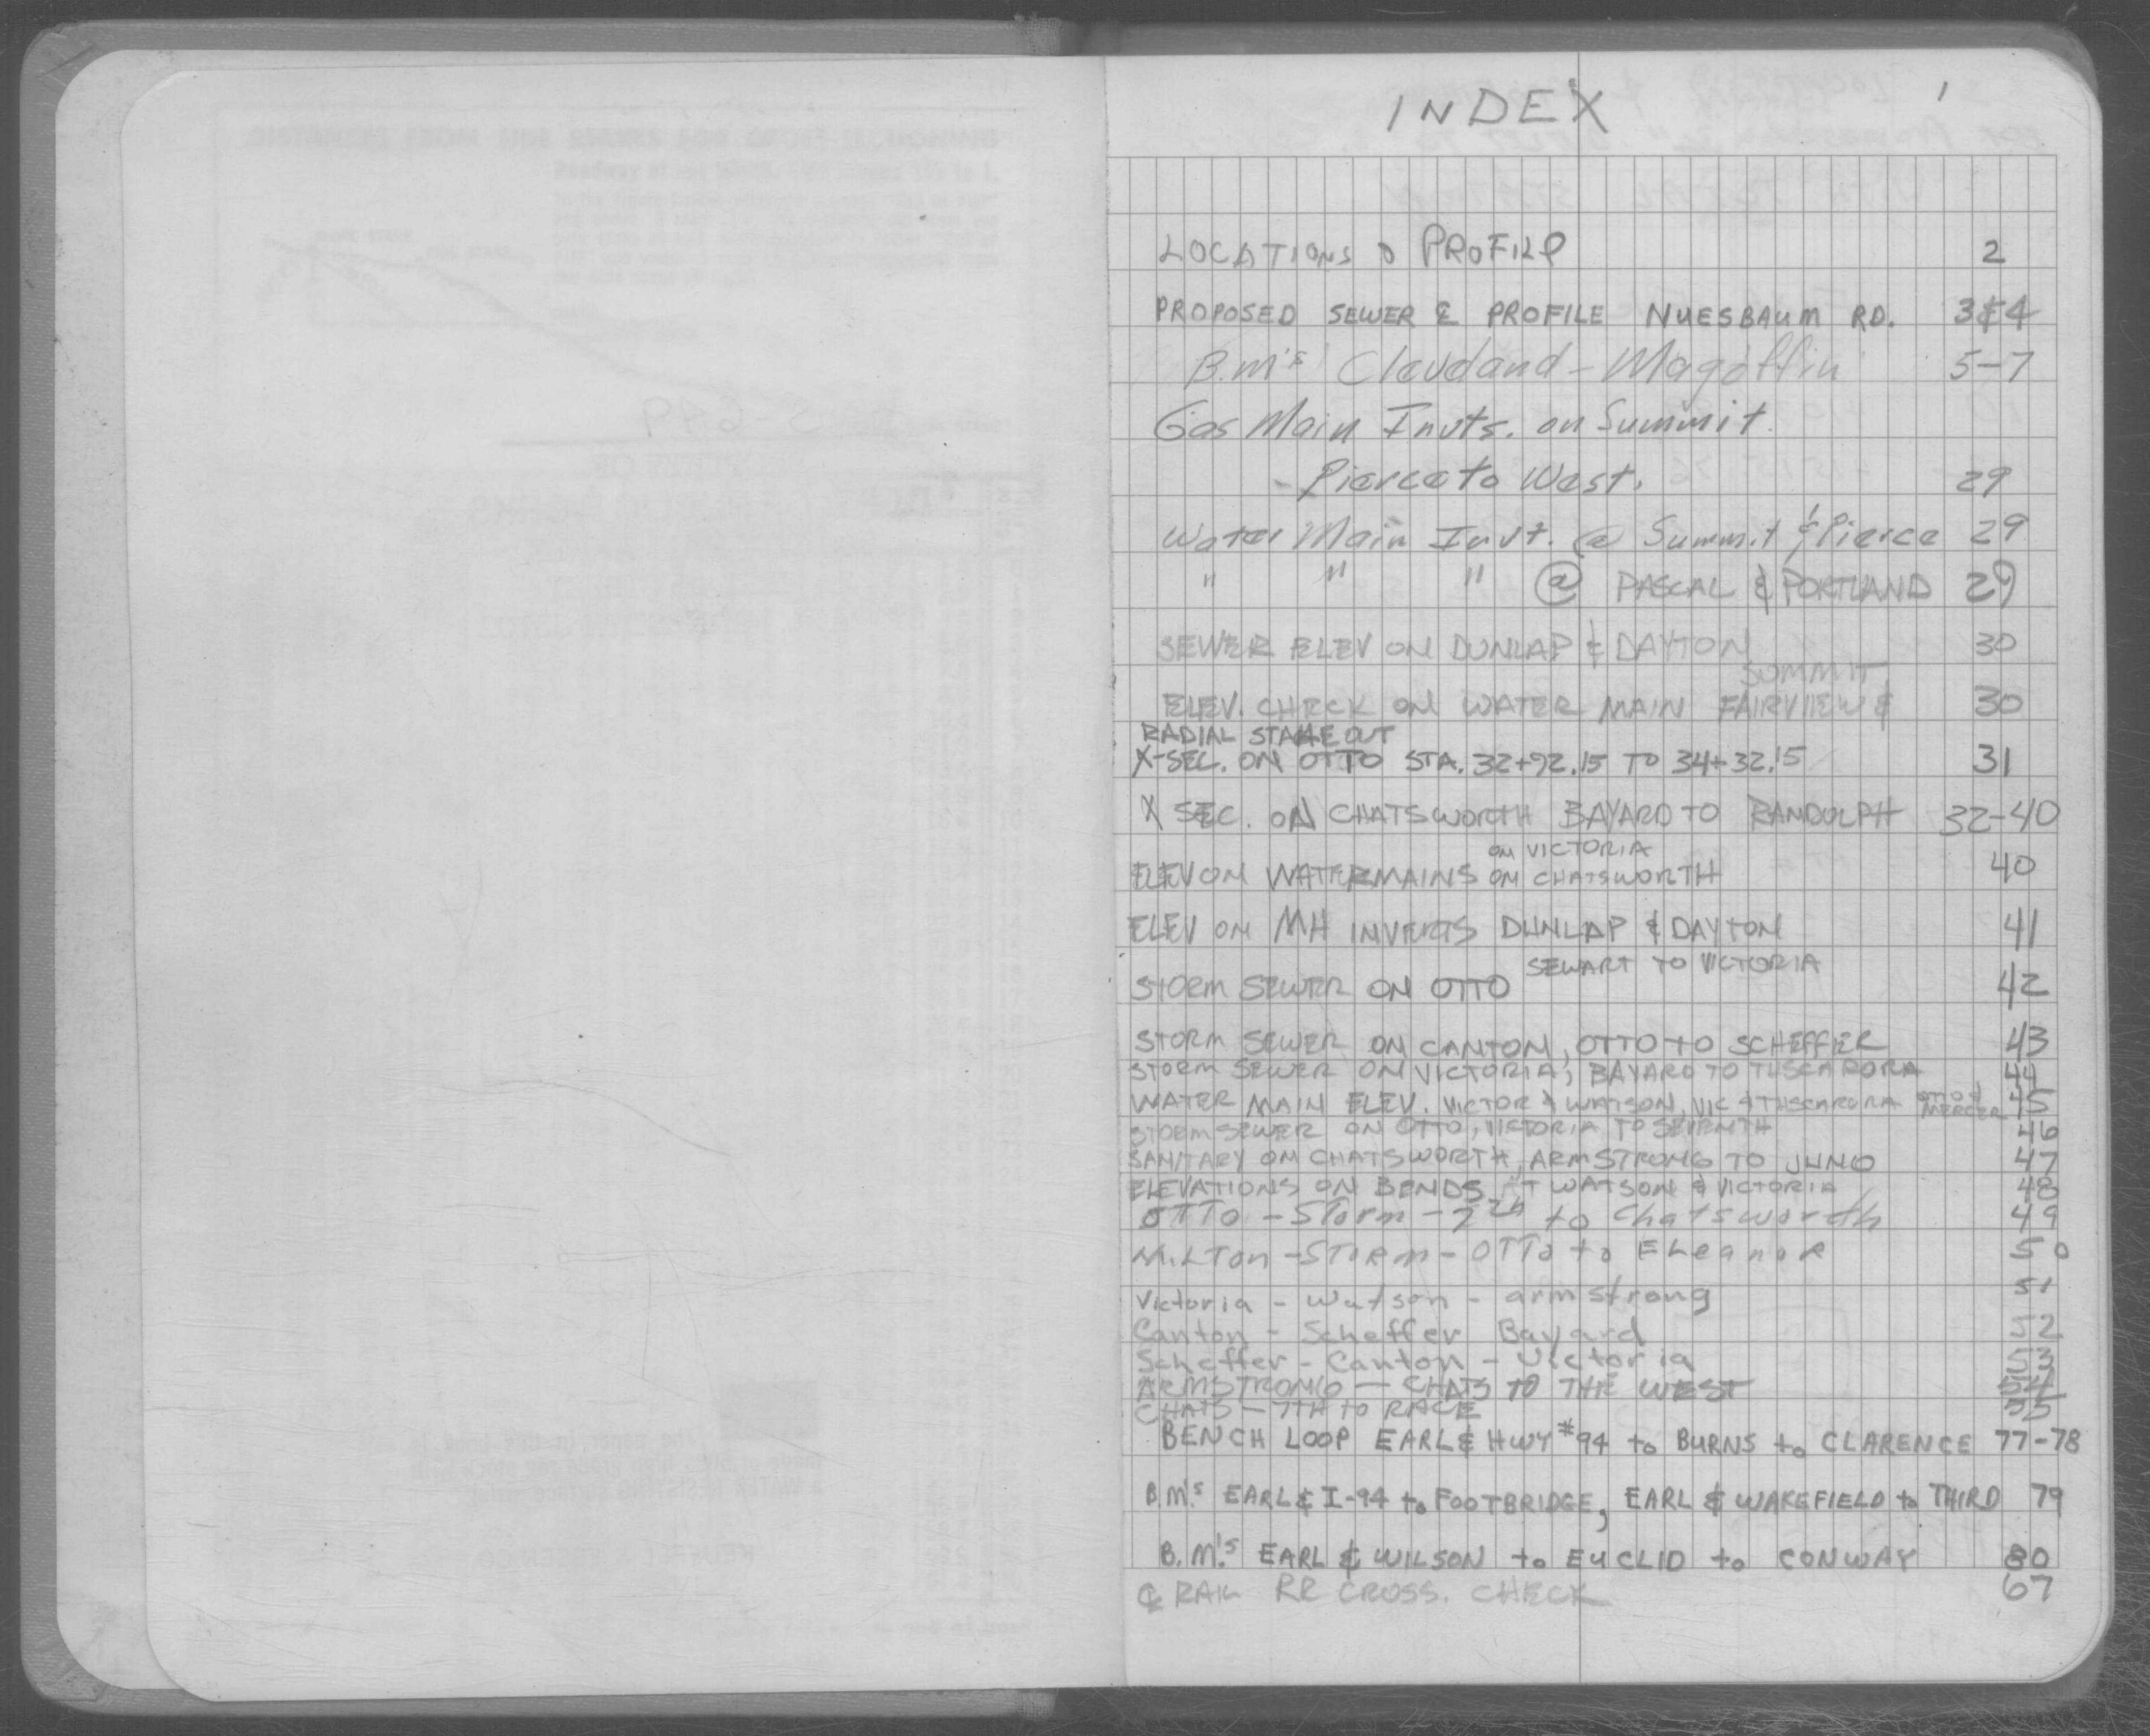 INDEX 1
LOCATIONS & PROFILE 2
PROPOSED SEWER & PROFILE NUESBAUM RD. 3&4
B.M's Cleveland - Magoffin 5-7
Gas Main Invts. on Summit.
- Pierce to West. 29
Water Main Invt. @ Summit & Pierce 29
" " " @ PASCAL & PORTLAND 29
SEWER ELEV ON DUNLAP & DAYTON 30
SUMMIT
ELEV. CHECK ON WATER MAIN FAIRVIEW & 30
RADIAL STAKE OUT
X-SEC. ON OTTO STA. 32+92.15 TO 34+32.15 31
X SEC. ON CHATSWORTH BAYARD TO RANDOLPH 32-40
ON VICTORIA
ELEV ON WATERMAINS ON CHATSWORTH 40
ELEV ON MH INVERTS DUNLAP & DAYTON 41
SEWART TO VICTORIA
STORM SEWER ON OTTO 42
STORM SEWER ON CANTON, OTTO TO SCHEFFER 43
STORM SEWER ON VICTORIA, BAYARD TO TUSCARORA 44
WATER MAIN ELEV. VICTOR & WATSON, VIC & TUSCARORA OTTO & MERCER 45
STORM SEWER ON OTTO, VICTORIA TO SEVENTH 46
SANITARY ON CHATSWORTH, ARMSTRONG TO JUNO 47
ELEVATIONS ON BENDS AT WATSON & VICTORIA 48
OTTO - STORM - 7th to Chatsworth 49
MILTon - STORM - OTTo to ELeanor 50
Victoria - Watson - armstrong 51
Canton - Scheffer Bayard 52
Scheffer - Canton - Victoria 53
ARMSTRONG - CHATS TO THE WEST 54
CHATS - 7TH TO RACE 55
BENCH LOOP EARL & HWY #94 to BURNS to CLARENCE 77-78
B.M.'s EARL & I-94 to FOOTBRIDGE, EARL & WAKEFIELD to THIRD 79
B.M.'s EARL & WILSON to EUCLID to CONWAY 80
℄ RAIL RR CROSS. CHECK 67